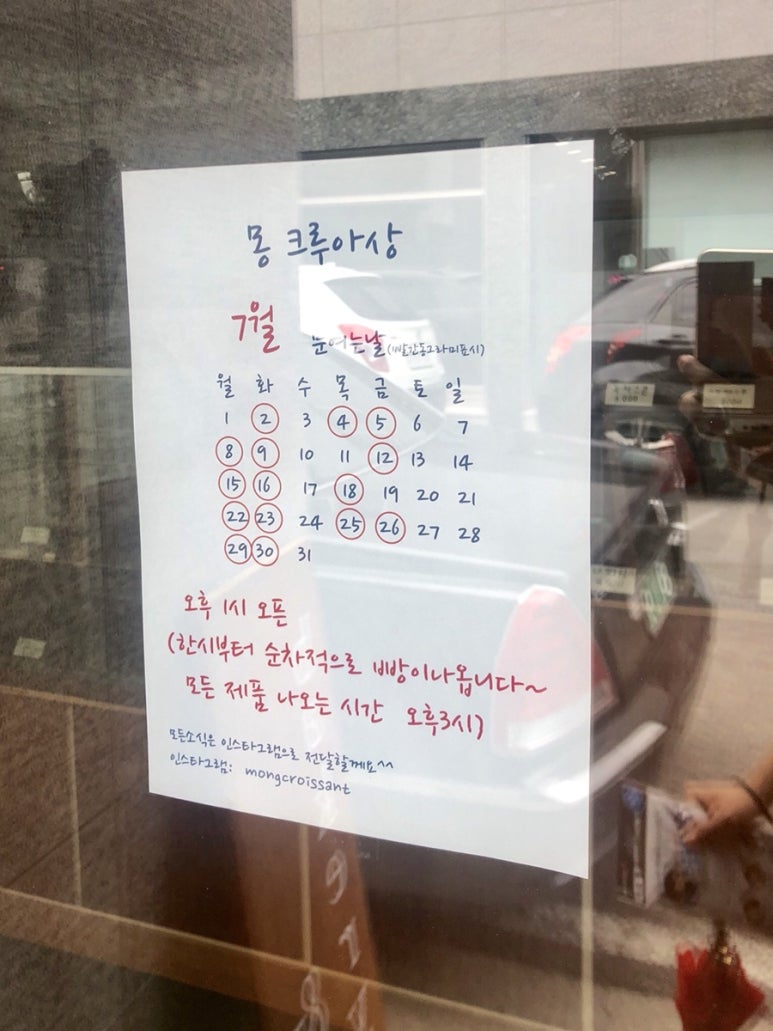 몽 크루아상
7월 문여는날 (빨간동그라미표시)
월 화 수 목 금 토 일
1 2 3 4 5 6 7
8 9 10 11 12 13 14
15 16 17 18 19 20 21
22 23 24 25 26 27 28
29 30 31
오후 1시 오픈
(한시부터 순차적으로 빵이나옵니다~
모든 제품 나오는 시간 오후3시)
모든소식은 인스타그램으로 전달할께요^^
인스타그램: mongcroissant